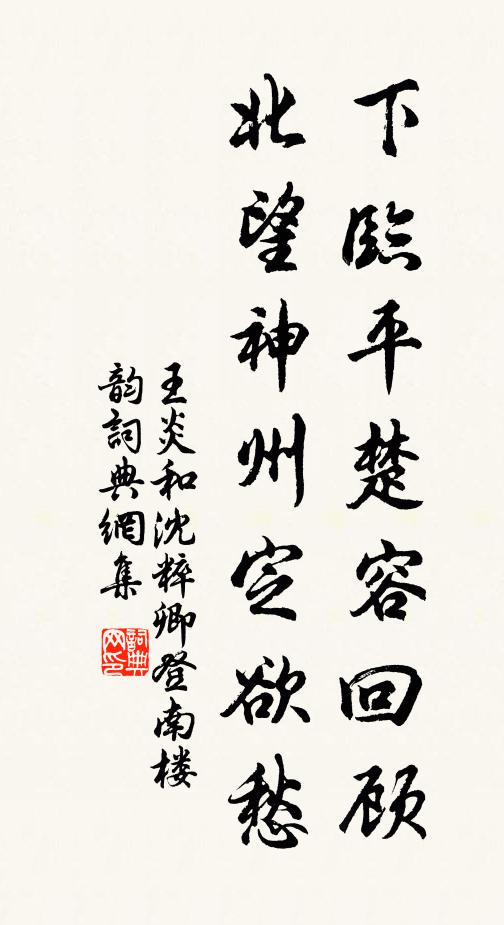 下臨平楚容回顾
北望神州空欲愁
王炎和沈粹卿登南楼
韵詞典網集
詞典网印